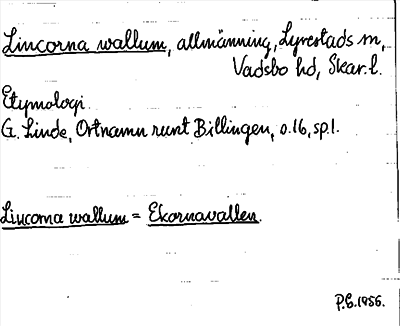 Lincorna wallum, allmänning, Lyrestads sn,
Vadsbo hd, Skar. l.
Etymologi
G. Linde, Ortnamn runt Billingen, s.16, sp.1.
Lincorna wallum = Ekornavallen.
P.E. 1956.